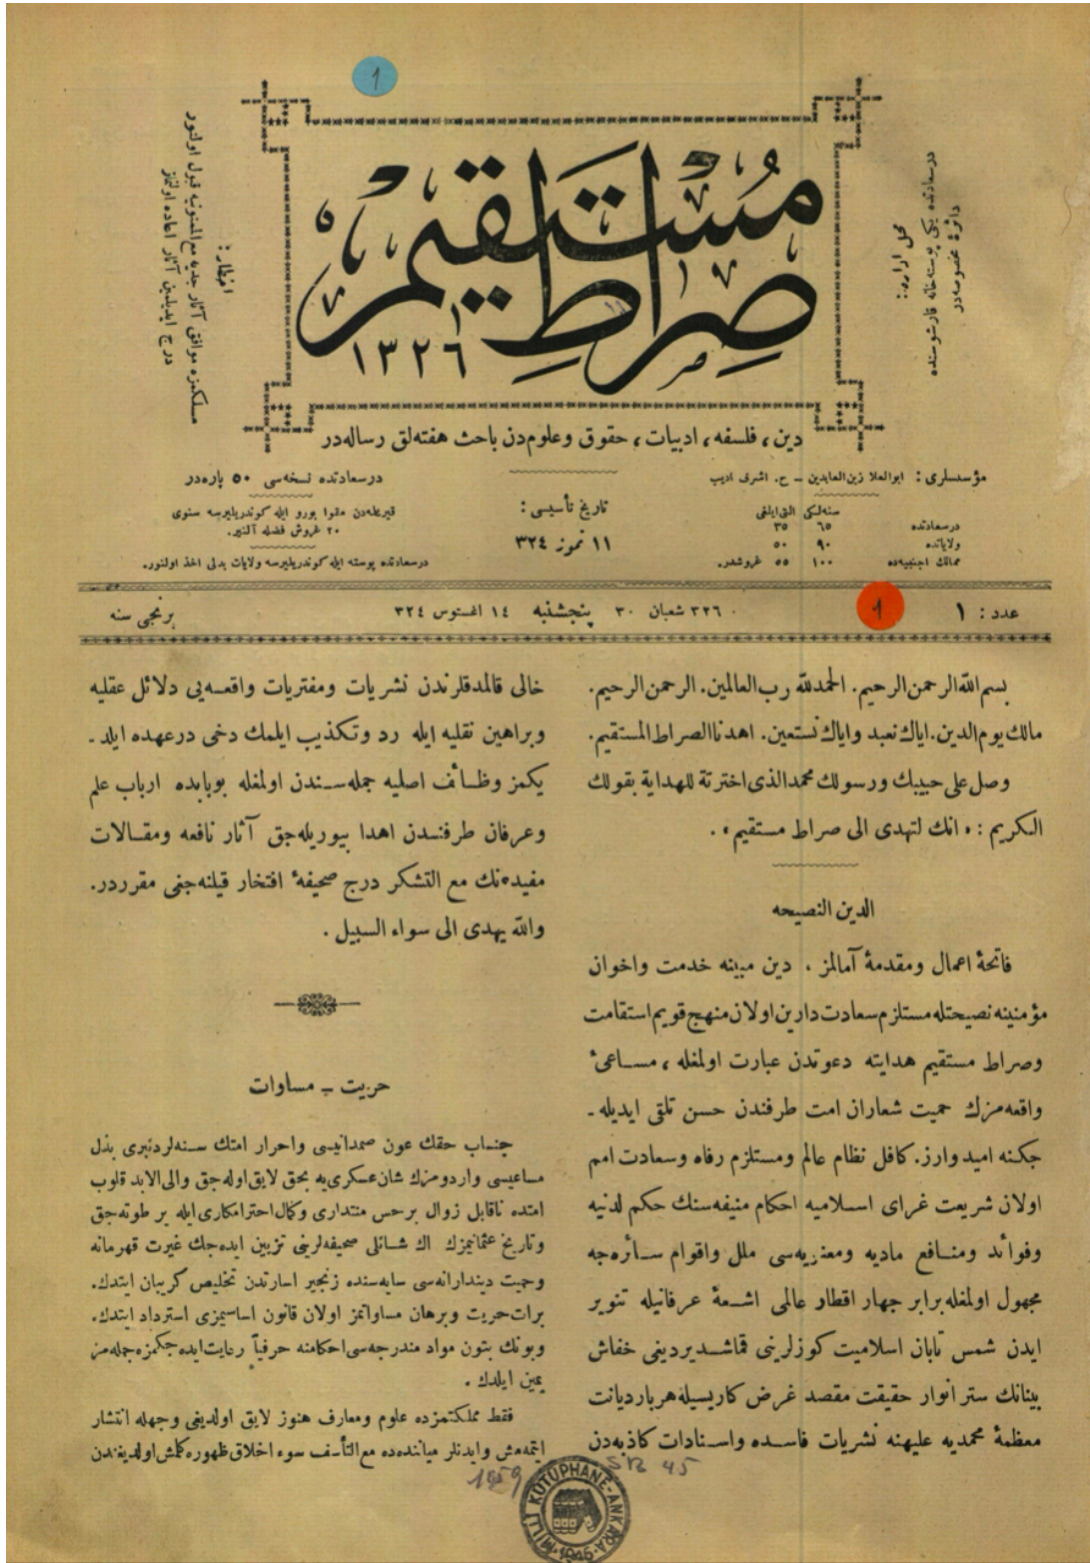 1
صراط مستقيم
١٣٢٦
محل اداره:
درسعادتده يكى پوسته‌خانه قارشوسنده
دائرهٔ مخصوصه‌در
اخطار:
مسلكمزه موافق آثار جديه مع‌الممنونيه قبول اولنور
درج ايديلمين آثار اعاده اولنماز
دين، فلسفه، ادبيات، حقوق وعلومدن باحث هفته‌لق رساله‌در
مؤسسلرى: ابوالعلا زين‌العابدين ـ ح. اشرف اديب
سنه‌لكى التى‌ايلغى
درسعادتده ٦٥ ٣٥
ولاياتده ٩٠ ٥٠
ممالك اجنبيه‌ده ١٠٠ ٥٥ غروشدر.
تاريخ تأسيسى:
١١ تموز ٣٢٤
درسعادتده نسخه‌سى ٥٠ پاره‌در
قيريلمه‌دن مقوا بورو ايله كوندريليرسه سنوى
٢٠ غروش فضله آلنير.
درسعادتده پوسته ايله كوندريليرسه ولايات بدلى اخذ اولنور.
عدد: ١
1
٣٢٦ شعبان ٣٠ پنجشنبه ١٤ اغستوس ٣٢٤
برنجى سنه
بسم الله الرحمن الرحيم. الحمدلله رب العالمين. الرحمن الرحيم.
مالك يوم الدين. اياك نعبد واياك نستعين. اهدنا الصراط المستقيم.
وصل على حبيبك ورسولك محمد الذى اخترتة للهداية بقولك
الكريم: «انك لتهدى الى صراط مستقيم».
الدين النصيحه
فاتحهٔ اعمال ومقدمهٔ آمالمز، دين مبينه خدمت واخوان
مؤمنينه نصيحتله مستلزم سعادت دارين اولان منهج قويم استقامت
وصراط مستقيم هدايته دعوتدن عبارت اولمغله، مساعىٔ
واقعه‌مزك حميت شعاران امت طرفندن حسن تلقى ايديله ـ
جكنه اميدوارز. كافل نظام عالم ومستلزم رفاه وسعادت امم
اولان شريعت غراى اسلاميه احكام منيفه‌سنك حكم لدنيه
وفوائد ومنافع ماديه ومعنويه‌سى ملل واقوام سائره‌جه
مجهول اولمغله برابر چهار اقطار عالمى اشعهٔ عرفانيله تنوير
ايدن شمس تابان اسلاميت كوزلرينى قماشديرديغى خفاش
بينانك ستر انوار حقيقت مقصد غرض كاريسيله هر بار ديانت
معظمهٔ محمديه عليهنه نشريات فاسده واسنادات كاذبه‌دن
خالى قالمدقلرندن نشريات ومفتريات واقعه‌يى دلائل عقليه
وبراهين نقليه ايله رد وتكذيب ايلمك دخى درعهده ايلد ـ
يكمز وظائف اصليه جمله‌سندن اولمغله بوبابده ارباب علم
وعرفان طرفندن اهدا بيوريله‌جق آثار نافعه ومقالات
مفيده‌نك مع التشكر درج صحيفهٔ افتخار قيلنه‌جغى مقرردر.
والله يهدى الى سواء السبيل.
حريت ـ مساوات
جناب حقك عون صمدانيسى واحرار امتك سنه‌لردنبرى بذل
مساعيسى واردومزك شان عسكرى‌يه بحق لايق اوله‌جق والى الابد قلوب
امتده ناقابل زوال برحس منتدارى وكمال احترامكارى ايله ير طوته‌جق
وتاريخ عثمانيمزك اك شانلى صحيفه‌لرينى تزيين ايده‌جك غيرت قهرمانه
وحميت ديندارانه‌سى سايه‌سنده زنجير اسارتدن تخليص كريبان ايتدك.
برات حريت وبرهان مساواتمز اولان قانون اساسيمزى استرداد ايتدك.
وبونك بتون مواد مندرجه‌سى احكامنه حرفياً رعايت ايده‌جكمزه جمله‌مز
يمين ايلدك.
فقط مملكتمزده علوم ومعارف هنوز لايق اولديغى وجهله انتشار
ايتمه‌مش وايدنلر مياننده‌ده مع التأسف سوء اخلاق ظهوره كلمش اولديغندن
1959
SB 45
MİLLİ KÜTÜPHANE-ANKARA
1946